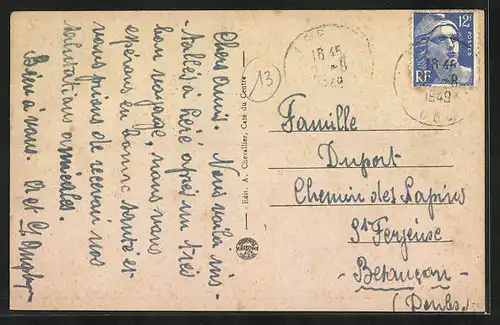 Chers amis. Nous voilà ins-
tallés à Léré après un très
bon voyage, nous vous
espérons en bonne santé et
vous prions de recevoir nos
salutations amicales.
Bien à vous.
Edit. A. Chevallier, Café du Centre
13
18 45
-8
1949
12F
POSTES
RF
18 45
-8
1949
Famille
Duport
Chemin des Sapins
St Ferjeuse
- Besançon -
(Doubs.)